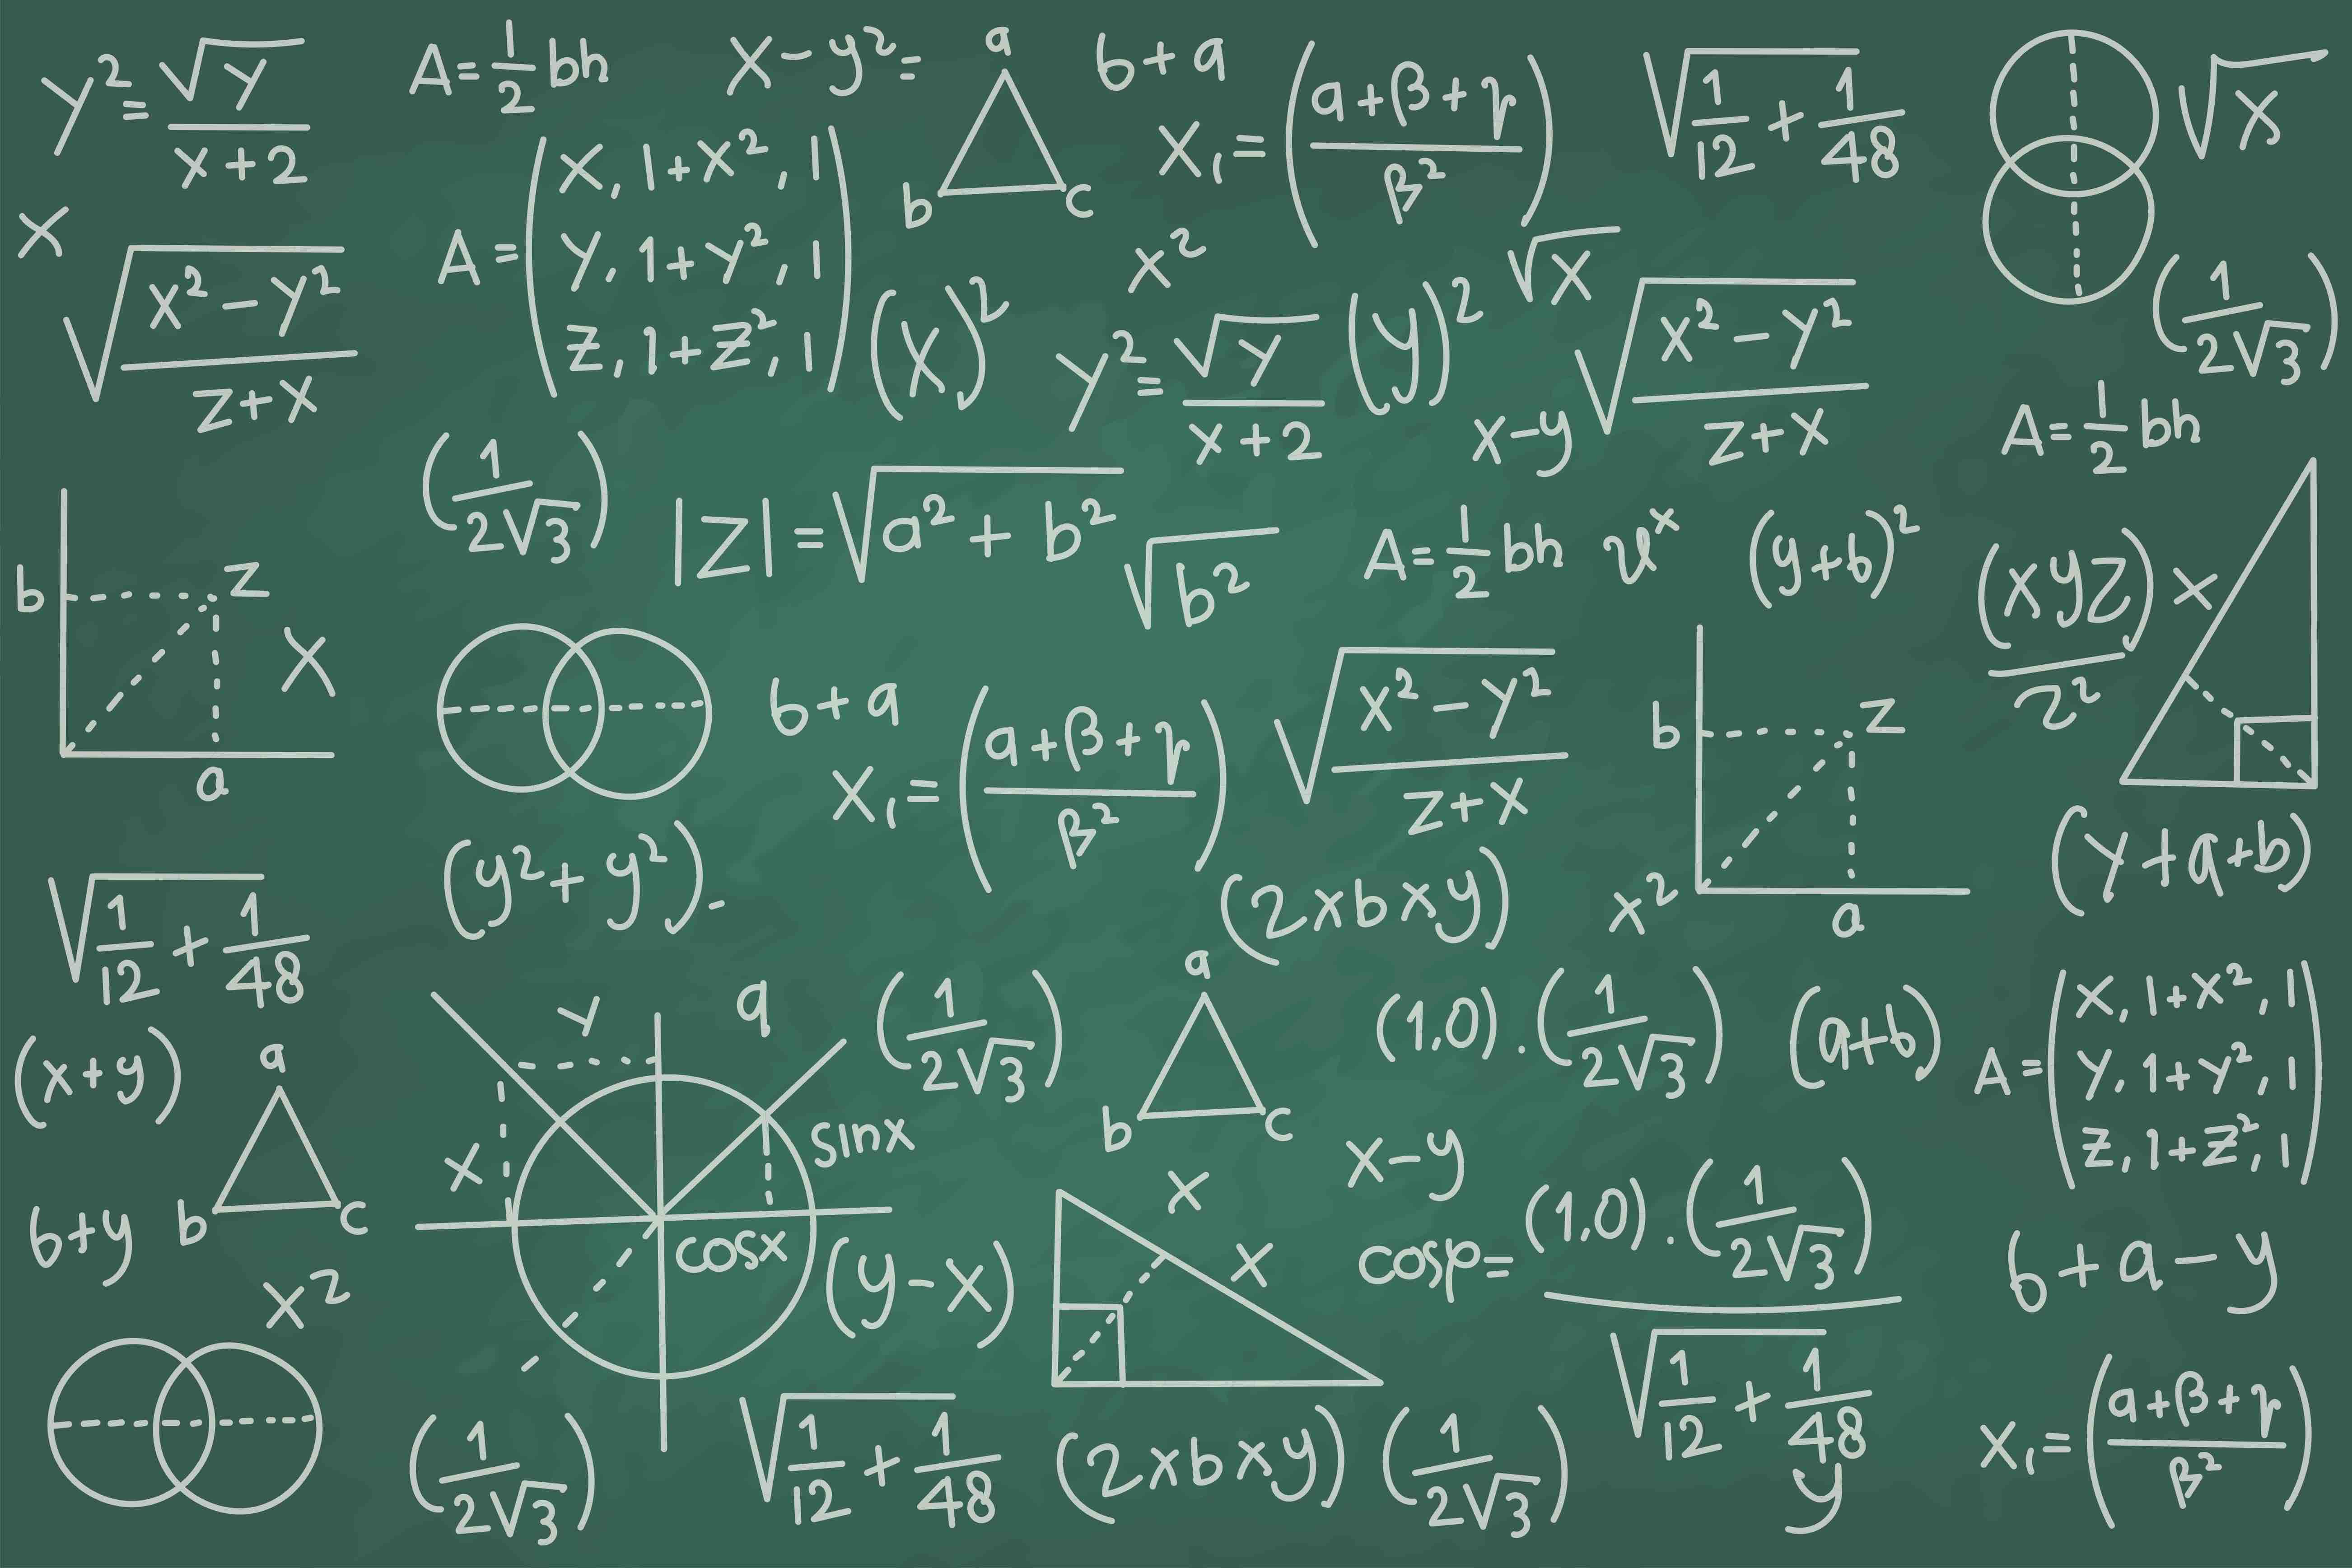 y² = √y / (x + 2)
A = 1/2 bh
x - y² =
a
b
c
b + a
x₁ = ((a + β + γ) / β²)
√(1/12 + 1/48)
√x
x
√((x² - y²) / (z + x))
A = (x, 1 + x², 1
y, 1 + y², 1
z, 1 + z², 1)
(x)²
x²
y² = √y / (x + 2)
(y)²
√x
x - y
√((x² - y²) / (z + x))
(1 / 2√3)
A = 1/2 bh
(1 / 2√3)
|z| = √(a² + b²)
√b²
A = 1/2 bh
(y + b)²
(xyz)
x
b
z
x
a
b + a
x₁ = ((a + β + γ) / β²)
√((x² - y²) / (z + x))
b
z
a
(y + a + b)
√(1/12 + 1/48)
(y² + y²) -
(2 x b x y)
x²
(x + y)
a
b
c
y
q
x
sinx
cosx
(1 / 2√3)
a
b
c
(1,0) . (1 / 2√3)
(a + b)
A = (x, 1 + x², 1
y, 1 + y², 1
z, 1 + z², 1)
b + y
x²
(y - x)
x
x
x - y
cosp = (1,0) . (1 / 2√3) / √(1/12 + 1/48)
b + a - y
(1 / 2√3)
√(1/12 + 1/48)
(2 x b x y)
(1 / 2√3)
y
x₁ = ((a + β + γ) / β²)